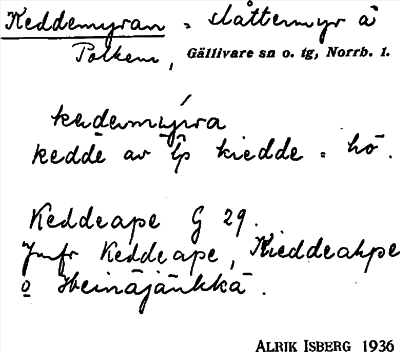 Keddemyran = slåttermyr å
Polkem, Gällivare sn o. tg, Norrb. 1.
kedemyra
kedde av lp kiedde = hö.
Keddeape G 29.
Jmfr Keddeape, Kieddeahpe
o Heinäjänkkä.
ALRIK ISBERG 1936